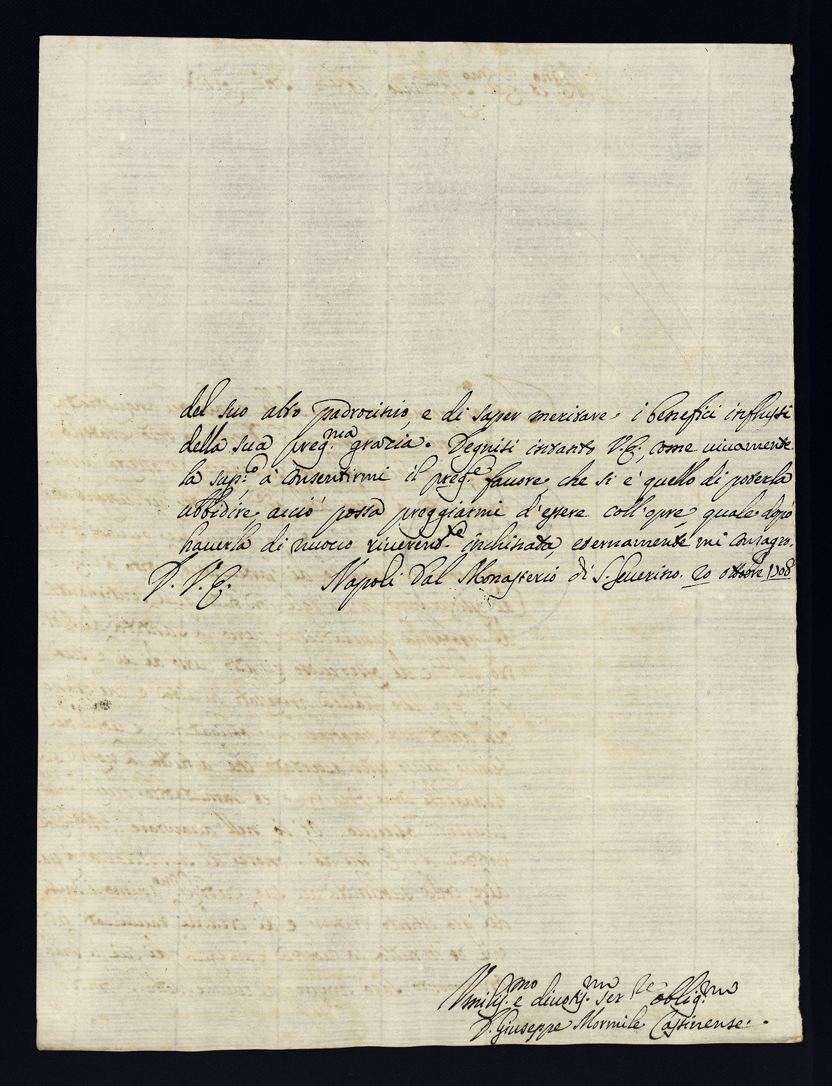 del suo alto padrocinio, e di saper meritare i benefici influssi
della sua preg.ma grazia. Degnisi intanto V.E., come vivamente
la sup.co à consentirmi il preg.e favore, che si è quello di poterla
obbidire, acciò possa preggiarmi d'essere coll'opre, quale dopò
haverla di nuovo riverente.te inchinata eternamente mi consagro.
D. V. E. Napoli Dal Monasterio di S. Severino. 20 ottobre 1708
Umiliss.mo e divotiss.mo ser.re oblig.mo
D. Giuseppe Mormile Casinense.